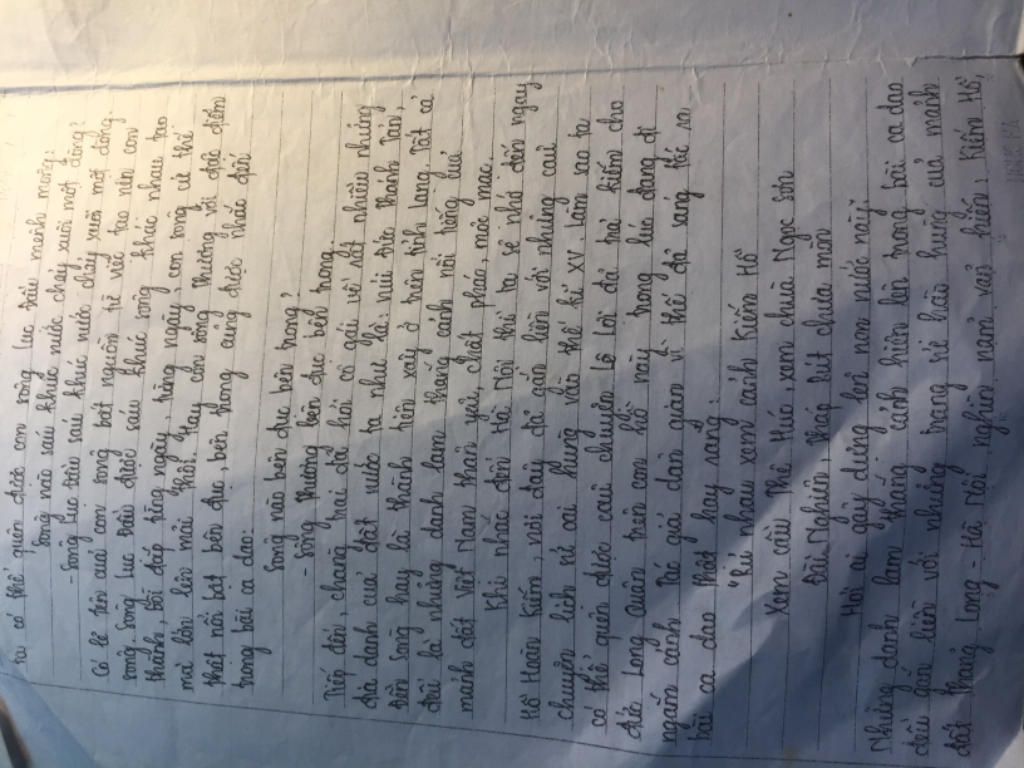 ta có thể quên được con sông lục đầu mênh mông:
Sông nào sáu khúc nước chảy xuôi một dòng?
- Sông Lục đầu sáu khúc nước chảy xuôi một dòng.
Có lẽ tên của con sông bắt nguồn từ việc tạo nên con
sông. Sông Lục Đầu được sáu khúc sông khác nhau tạo
thành, bồi đắp từng ngày, từng ngày con sông cứ thế
mà lớn lên mãi thôi. Hay con sông Thương với đặc điểm
thật nổi bật bên đục, bên trong cũng được nhắc đến
trong bài ca dao:
Sông nào bên đục bên trong?
- Sông Thương bên đục bên trong.
Tiếp đến, chàng trai đã hỏi cô gái về rất nhiều những
địa danh của đất nước ta như là: núi Đức Thánh Tản,
Đền Sòng hay là thành tiên xây ở trên tỉnh Lạng. Tất cả
đều là những danh lam thắng cảnh nổi tiếng của
mảnh đất Việt Nam thân yêu, chất phác, mộc mạc.
Khi nhắc đến Hà Nội thì ta sẽ nhớ đến ngay
Hồ Hoàn Kiếm, nơi đây đã gắn liền với những câu
chuyện lịch sử oai hùng vào thế kỉ XV. Làm sao ta
có thể quên được câu chuyện Lê Lợi đã trả kiếm cho
đức Long Quân trên con hồ này trong lúc đang đi
ngắm cảnh. Tác giả dân gian vì thế đã sáng tác ra
bài ca dao thật hay rằng:
"Rủ nhau xem cảnh Kiếm Hồ
Xem cầu Thê Húc, xem chùa Ngọc Sơn
Đài Nghiên, Tháp Bút chưa mòn
Hỏi ai gây dựng lên non nước này?"
Những danh lam thắng cảnh hiện lên trong bài ca dao
đều gắn liền với những trang sử hào hùng của mảnh
đất Thăng Long - Hà Nội nghìn năm văn hiến. Kiếm Hồ,